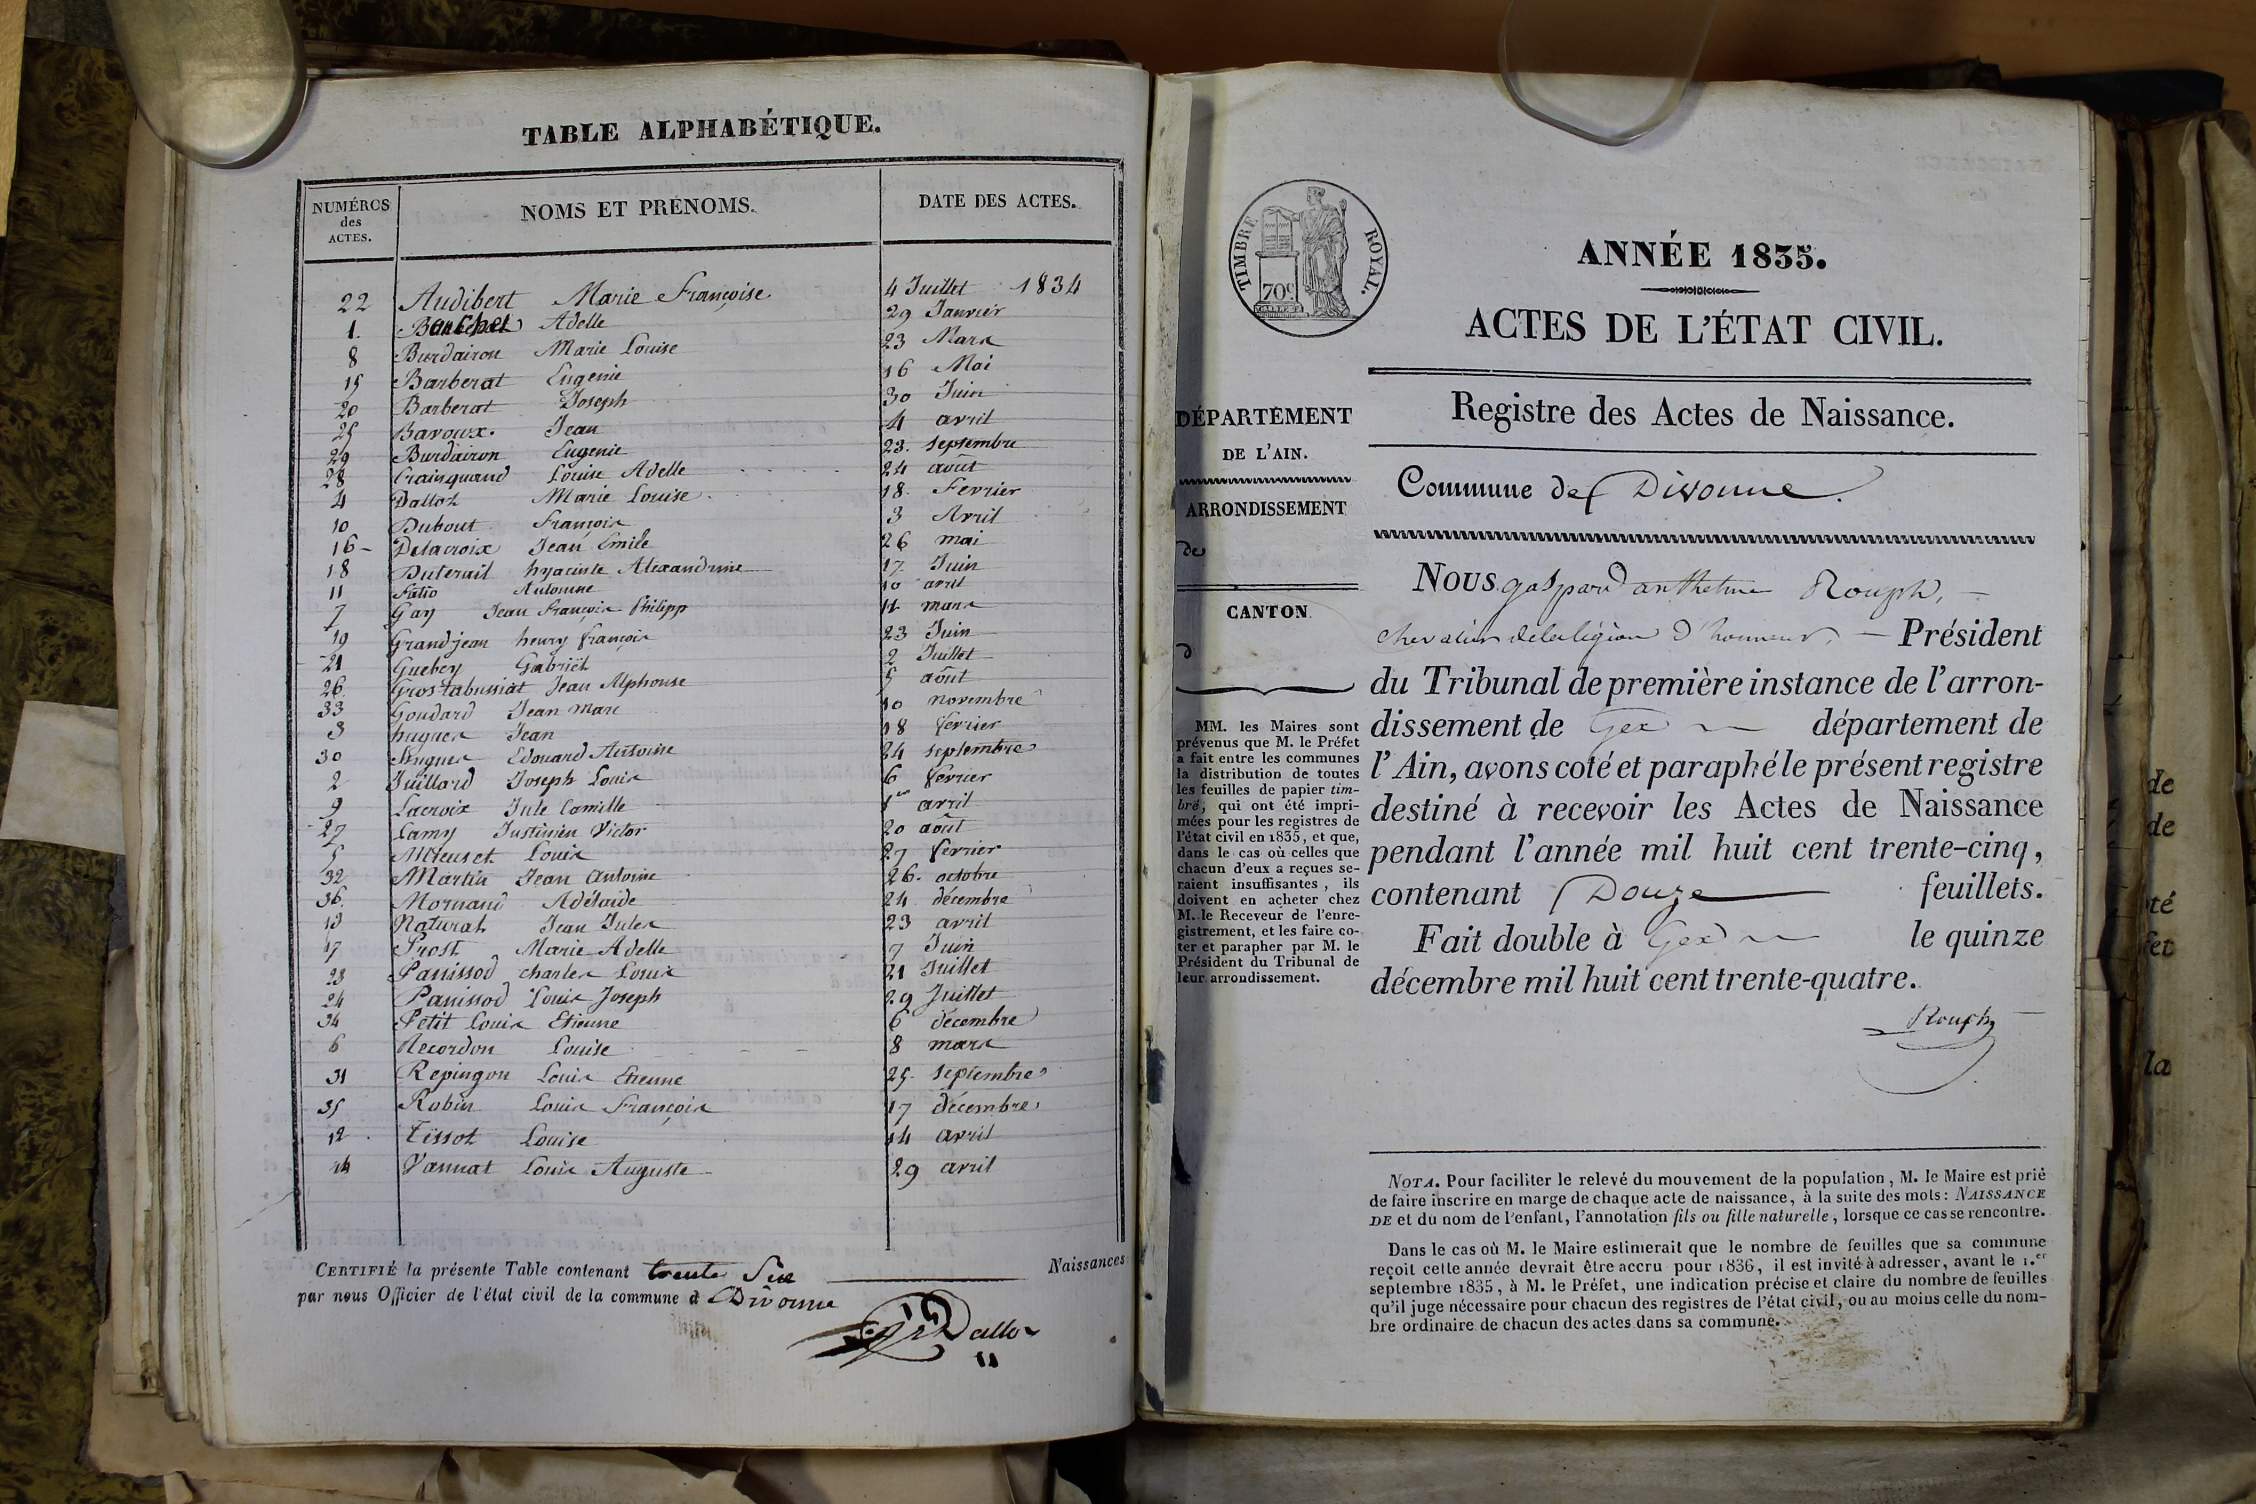 TABLE ALPHABÉTIQUE.
NUMÉROS des ACTES.
NOMS ET PRÉNOMS.
DATE DES ACTES.
22 Audibert Marie Françoise 4 Juillet 1834
1. Adelle 29 Janvier
8 Burdairon Marie Louise 23 Mars
15 Barberat Eugenie 16 Mai
20 Barberat Joseph 30 Juin
25 Baroux. Jean 4 avril
29 Burdairon Eugenie 23. septembre
28 Crainquand Louise Adelle 24 août
4 Dalloz Marie Louise 18. Fevrier
10 Dubout François 3 Avril
16 - Delacroix Jean Emile 26 mai
18 Duterail hyacinte Alexandrine 17 Juin
11 Futio Antoinne 10 avril
7 Gay Jean François Philipp 11 mars
19 Grandjean henry françois 23 Juin
21 Guebey Gabriel 2 Juillet
26. Grostabussiat Jean Alphonse 5 août
33 Goudard Jean Marc 10 novembre
3 hugues Jean 18 fevrier
30 hugues Edouard Antoine 24 septembre
2 Juillard Joseph Louis 6 fevrier
9 Lacroix Jule Camille 1er avril
27 Lamy Justinien Victor 20 août
5 Mieusset Louis 27 fevrier
32 Martin Jean Antoine 26. octobre
36. Mornand Adélaide 24 décembre
13 Natural Jean Jules 23 avril
17 Prost Marie Adelle 7 Juin
23 Panissod charles Louis 21 Juillet
24 Panissod Louis Joseph 29 Juillet
34 Petit Louis Etienne 6 décembre
6 Recordon Louise 8 mars
31 Repingon Louis Etienne 25. septembre
35 Robin Louis François 17 décembre
12. Tissot Louise 14 avril
14 Vannat Louis Auguste 29 avril
CERTIFIÉ la présente Table contenant trente Six Naissances
par nous Officier de l'état civil de la commune d Divonne
Dalloz
TIMBRE ROYAL.
70c
ANNÉE 1835.
ACTES DE L'ÉTAT CIVIL.
DÉPARTEMENT
DE L'AIN.
ARRONDISSEMENT
de
CANTON
d
MM. les Maires sont
prévenus que M. le Préfet
a fait entre les communes
la distribution de toutes
les feuilles de papier tim-
bré, qui ont été impri-
mées pour les registres de
l'état civil en 1835, et que,
dans le cas où celles que
chacun d'eux a reçues se-
raient insuffisantes, ils
doivent en acheter chez
M. le Receveur de l'enre-
gistrement, et les faire co-
ter et parapher par M. le
Président du Tribunal de
leur arrondissement.
Registre des Actes de Naissance.
Commune de Divonne.
NOUS gaspard anthelme Rouph,
chevalier de la légion d'honneur, — Président
du Tribunal de première instance de l'arron-
dissement de Gex département de
l'Ain, avons coté et paraphé le présent registre
destiné à recevoir les Actes de Naissance
pendant l'année mil huit cent trente-cinq,
contenant Douze feuillets.
Fait double à Gex le quinze
décembre mil huit cent trente-quatre.
Rouph
NOTA. Pour faciliter le relevé du mouvement de la population, M. le Maire est prié
de faire inscrire en marge de chaque acte de naissance, à la suite des mots: NAISSANCE
DE et du nom de l'enfant, l'annotation fils ou fille naturelle, lorsque ce cas se rencontre.
Dans le cas où M. le Maire estimerait que le nombre de feuilles que sa commune
reçoit cette année devrait être accru pour 1836, il est invité à adresser, avant le 1.er
septembre 1835, à M. le Préfet, une indication précise et claire du nombre de feuilles
qu'il juge nécessaire pour chacun des registres de l'état civil, ou au moins celle du nom-
bre ordinaire de chacun des actes dans sa commune.
de
de
té
fet
la